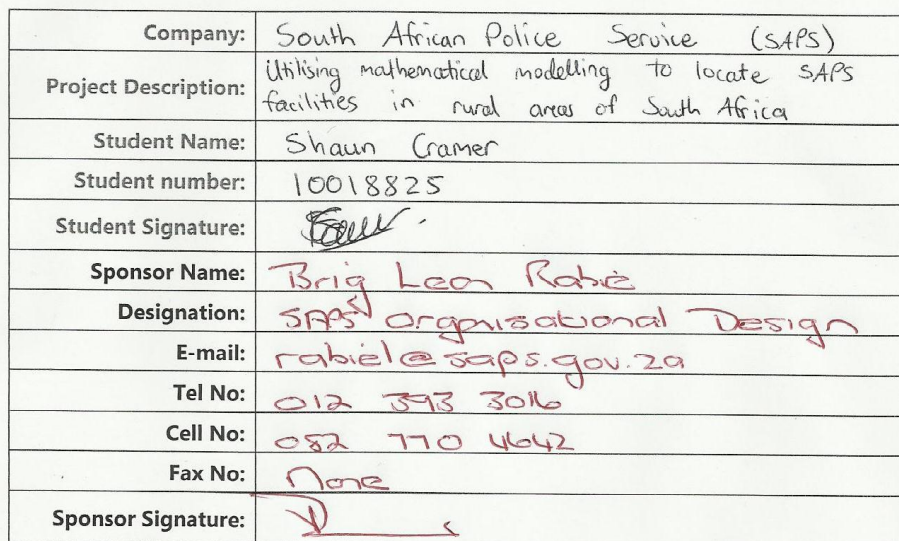 Company: South African Police Service (SAPS)
Project Description: Utilising mathematical modelling to locate SAPS
facilities in rural areas of South Africa
Student Name: Shaun Cramer
Student number: 10018825
Student Signature:
Sponsor Name: Brig Leon Rabie
Designation: SAPS Organisational Design
E-mail: rabiel@saps.gov.za
Tel No: 012 393 3016
Cell No: 082 770 4642
Fax No: None
Sponsor Signature: